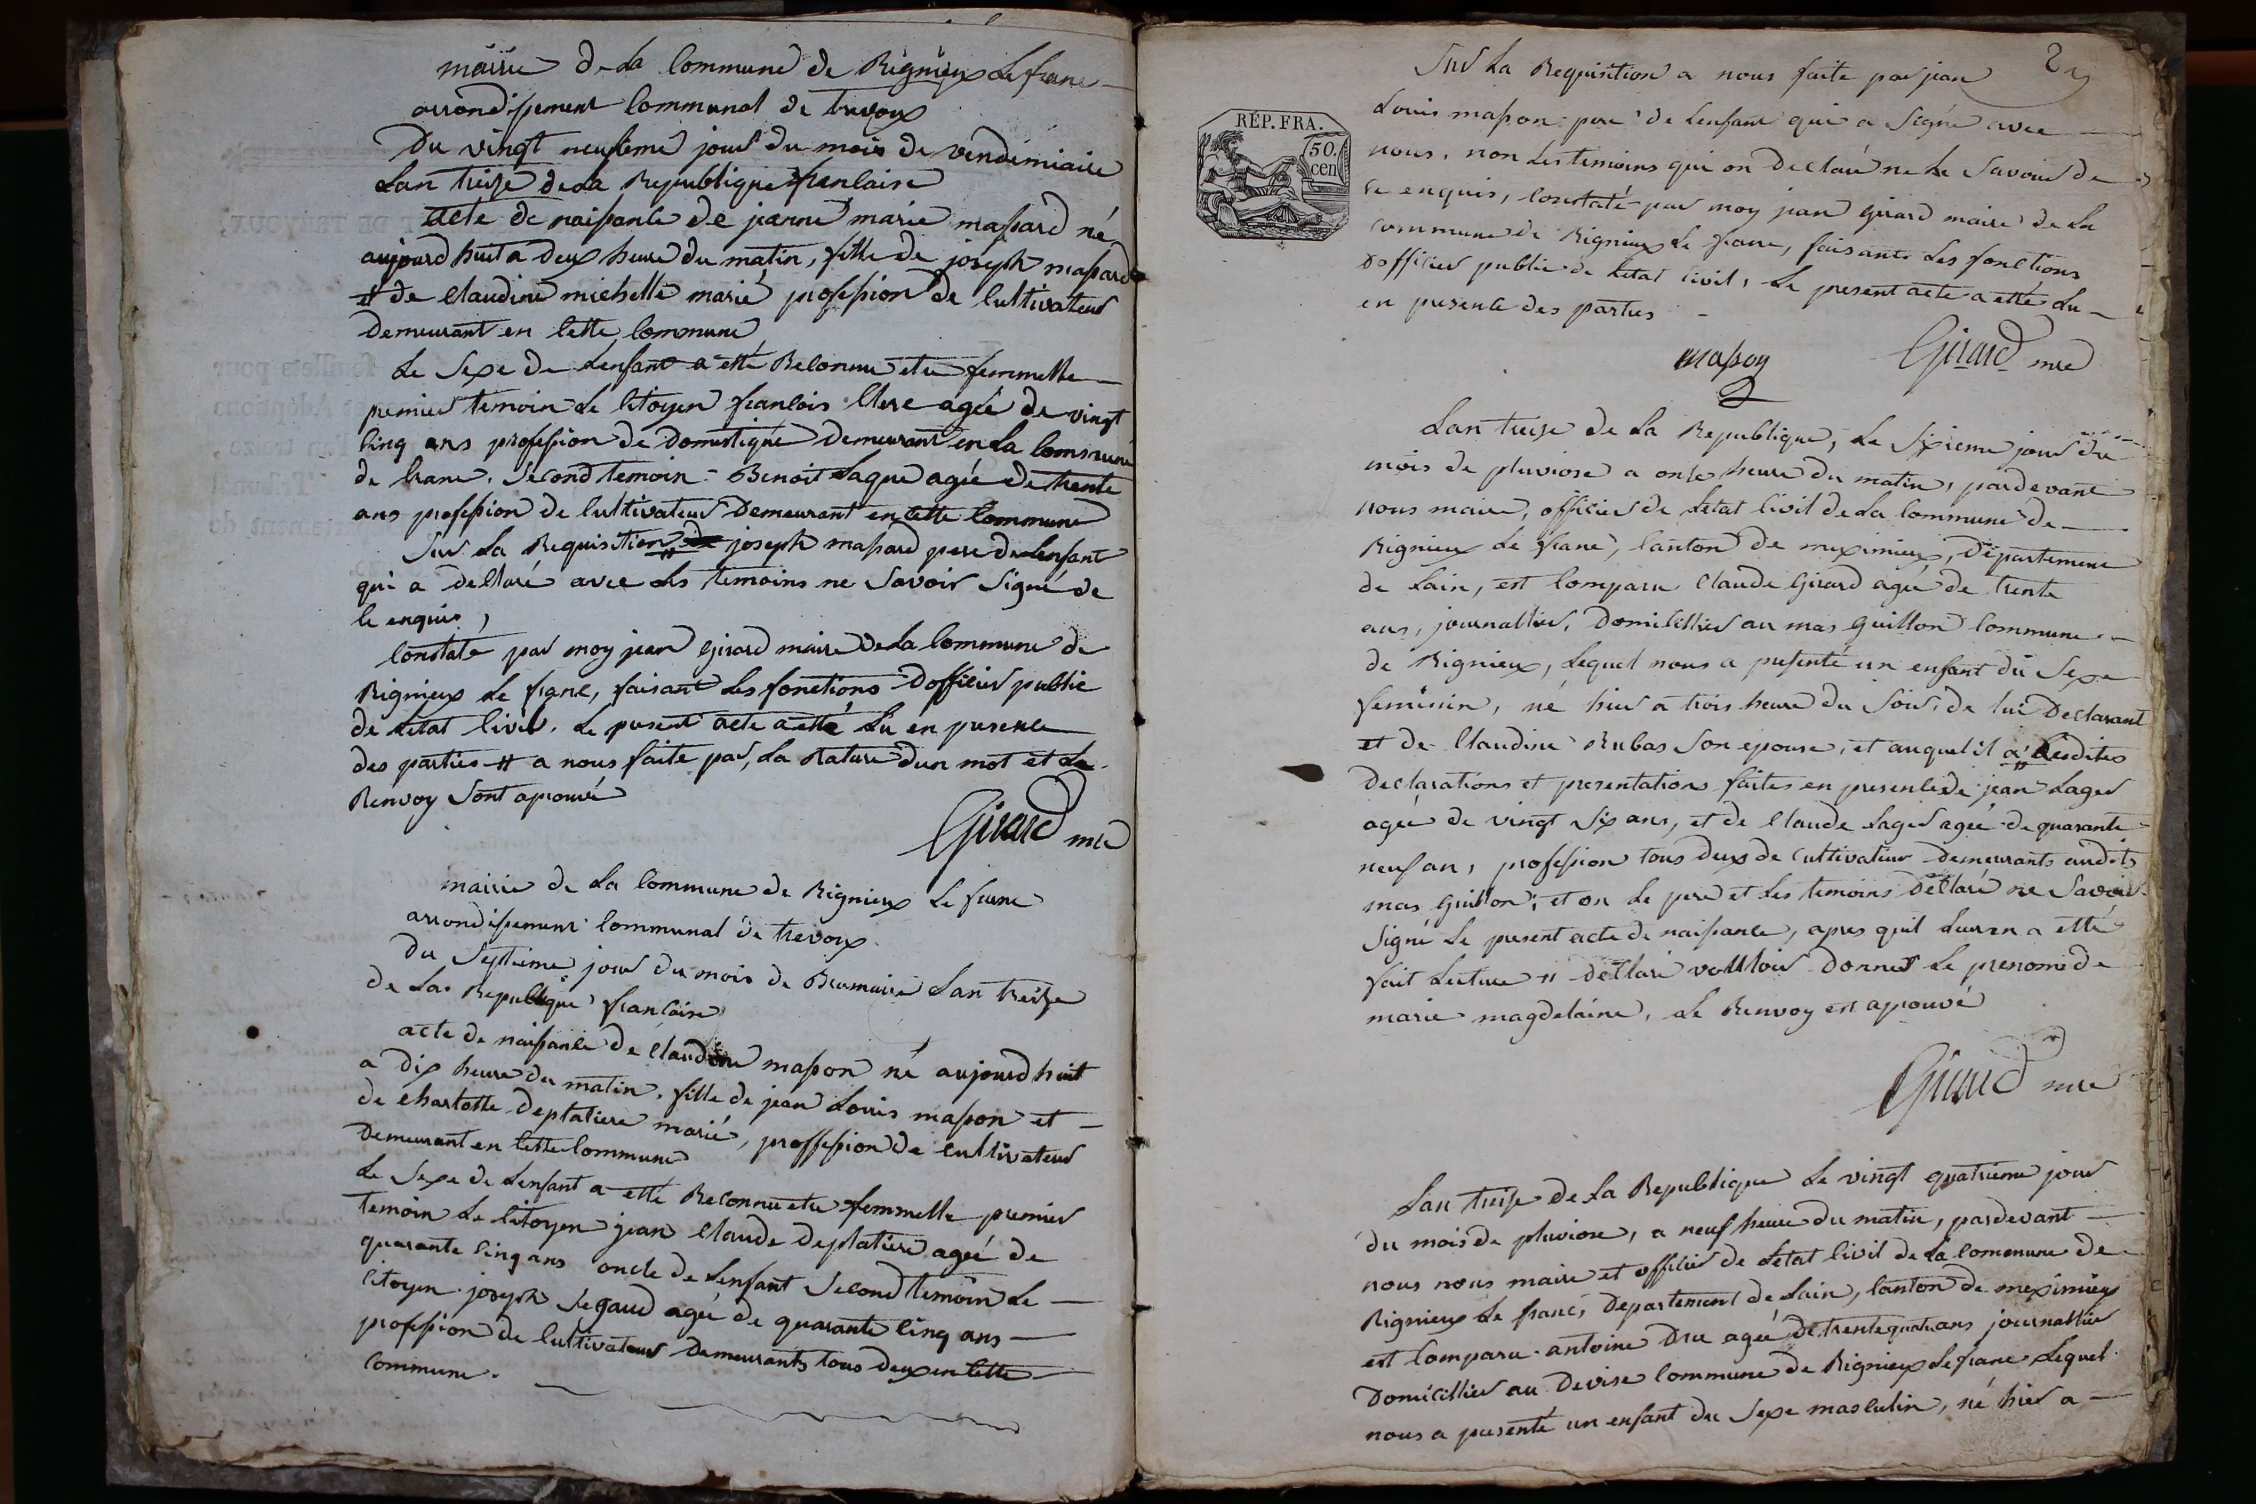 mairie de La Commune de Rignieux Lefranc
arrondissement Communal de trevoux
Du vingt neufieme jour du mois de vendemiaire
Lan treize dela Republique francaise
acte de naissance de jeanne marie massard né
aujourd huit a deux heure du matin, fille de joseph massard
et de Claudine michelle marié profession de Cultivateur
Demeurant en Cette Commune
Le Sexe de Lenfant a etté Reconnu etre femmelle
premier temoin Le Citoyen francois Clere agée de vingt
Cinq ans profession de Domestique Demeurant en La Commune
de Crane. Second temoin Benoit Laque agée de trente
ans profession de Cultivateur Demeurant en Cette Commune
Sur La Requisition joseph massard pere de Lenfant
qui a declaré avec Les temoins ne Savoir Signé de
Ce enquis,
Constaté par moy jean Girard maire de La Commune de
Rignieux Le franc, faisant Les fonctions Dofficier public
de Letat Civil. Le present acte a etté Lu en presence
des parties # a nous faite par, La Rature dun mot et Le
Renvoy Sont aprouvé
Girard mre
mairie de La Commune de Rignieux Le franc
arrondissement Communal de trevoux
Du Septieme jour du mois de Brumaire Lan treize
de La Republique francaise
acte de naissance de Claudine masson né aujourd huit
a dix heure du matin, fille de jean Louis masson et
de Charlotte Deplatiere marié, proffession de Cultivateur
Demeurant en Cette Commune
Le Sexe de Lenfant a etté Reconnu etre femmelle premier
temoin Le Citoyen jean Claude Deplatiere agée de
quarante Cinq ans oncle de Lenfant Second temoin Le
Citoyen joseph Segaud agée de quarante Cinq ans
profession de Cultivateur Demeurants tous deux en Cette
Commune.
2
Sur La Requisition a nous faite par jean
Louis masson pere de Lenfant qui a Signé avec
nous, non Les temoins qui on Declaré ne Le Savoir de
ce enquis, Constaté par moy jean Girard maire de La
Commune de Rignieux Le franc, faisants Les fonctions
Dofficier public de Letat Civil, Le present acte a etté Lu
en presence des parties
RÉP. FRA.
50.
cen
masson
Girard mre
Lan treize de La Republique, Le Sixieme jour du
mois de pluviose a onze heure du matin, pardevant
nous maire, officier de Letat Civil de La Commune de
Rignieux Le franc, Canton de meximieux, Departement
de Lain, est Comparu Claude Girard agée de trente
ans, journallier, Domicillier au mas Guillon Commune
de Rignieux, Lequel nous a presenté un enfant du Sexe
feminin, né hier a trois heure du Soir, de lui Declarant
et de Claudine Rubas Son epouse, et auquel il a # Lesdites
Declarations et presentations faites en presence de jean Lager
agée de vingt Six ans, et de Claude Lager agée de quarante
neuf an, profession tous deux de Cultivateur Demeurants audit
mas Guillon, et on Le pere et Les temoins Declaré ne Savoir
Signé Le present acte de naissance, apres quil Leur en a etté
fait Lecture # declaré volloir donner Le prenom de
marie magdelaine, Le Renvoy est aprouvé
Girard mre
Lan treize de La Republique Le vingt quatrieme jour
du mois de pluviose, a neuf heure du matin, pardevant
nous nous maire et officier de Letat Civil de La Commune de
Rignieux Le franc, Departement de Lain, Canton de meximieux
est Comparu antoine Dru agée de trente quatre ans journallier
Domicillier au Devise Commune de Rignieux Le franc Lequel
nous a presenté un enfant du Sexe masculin, né hier a